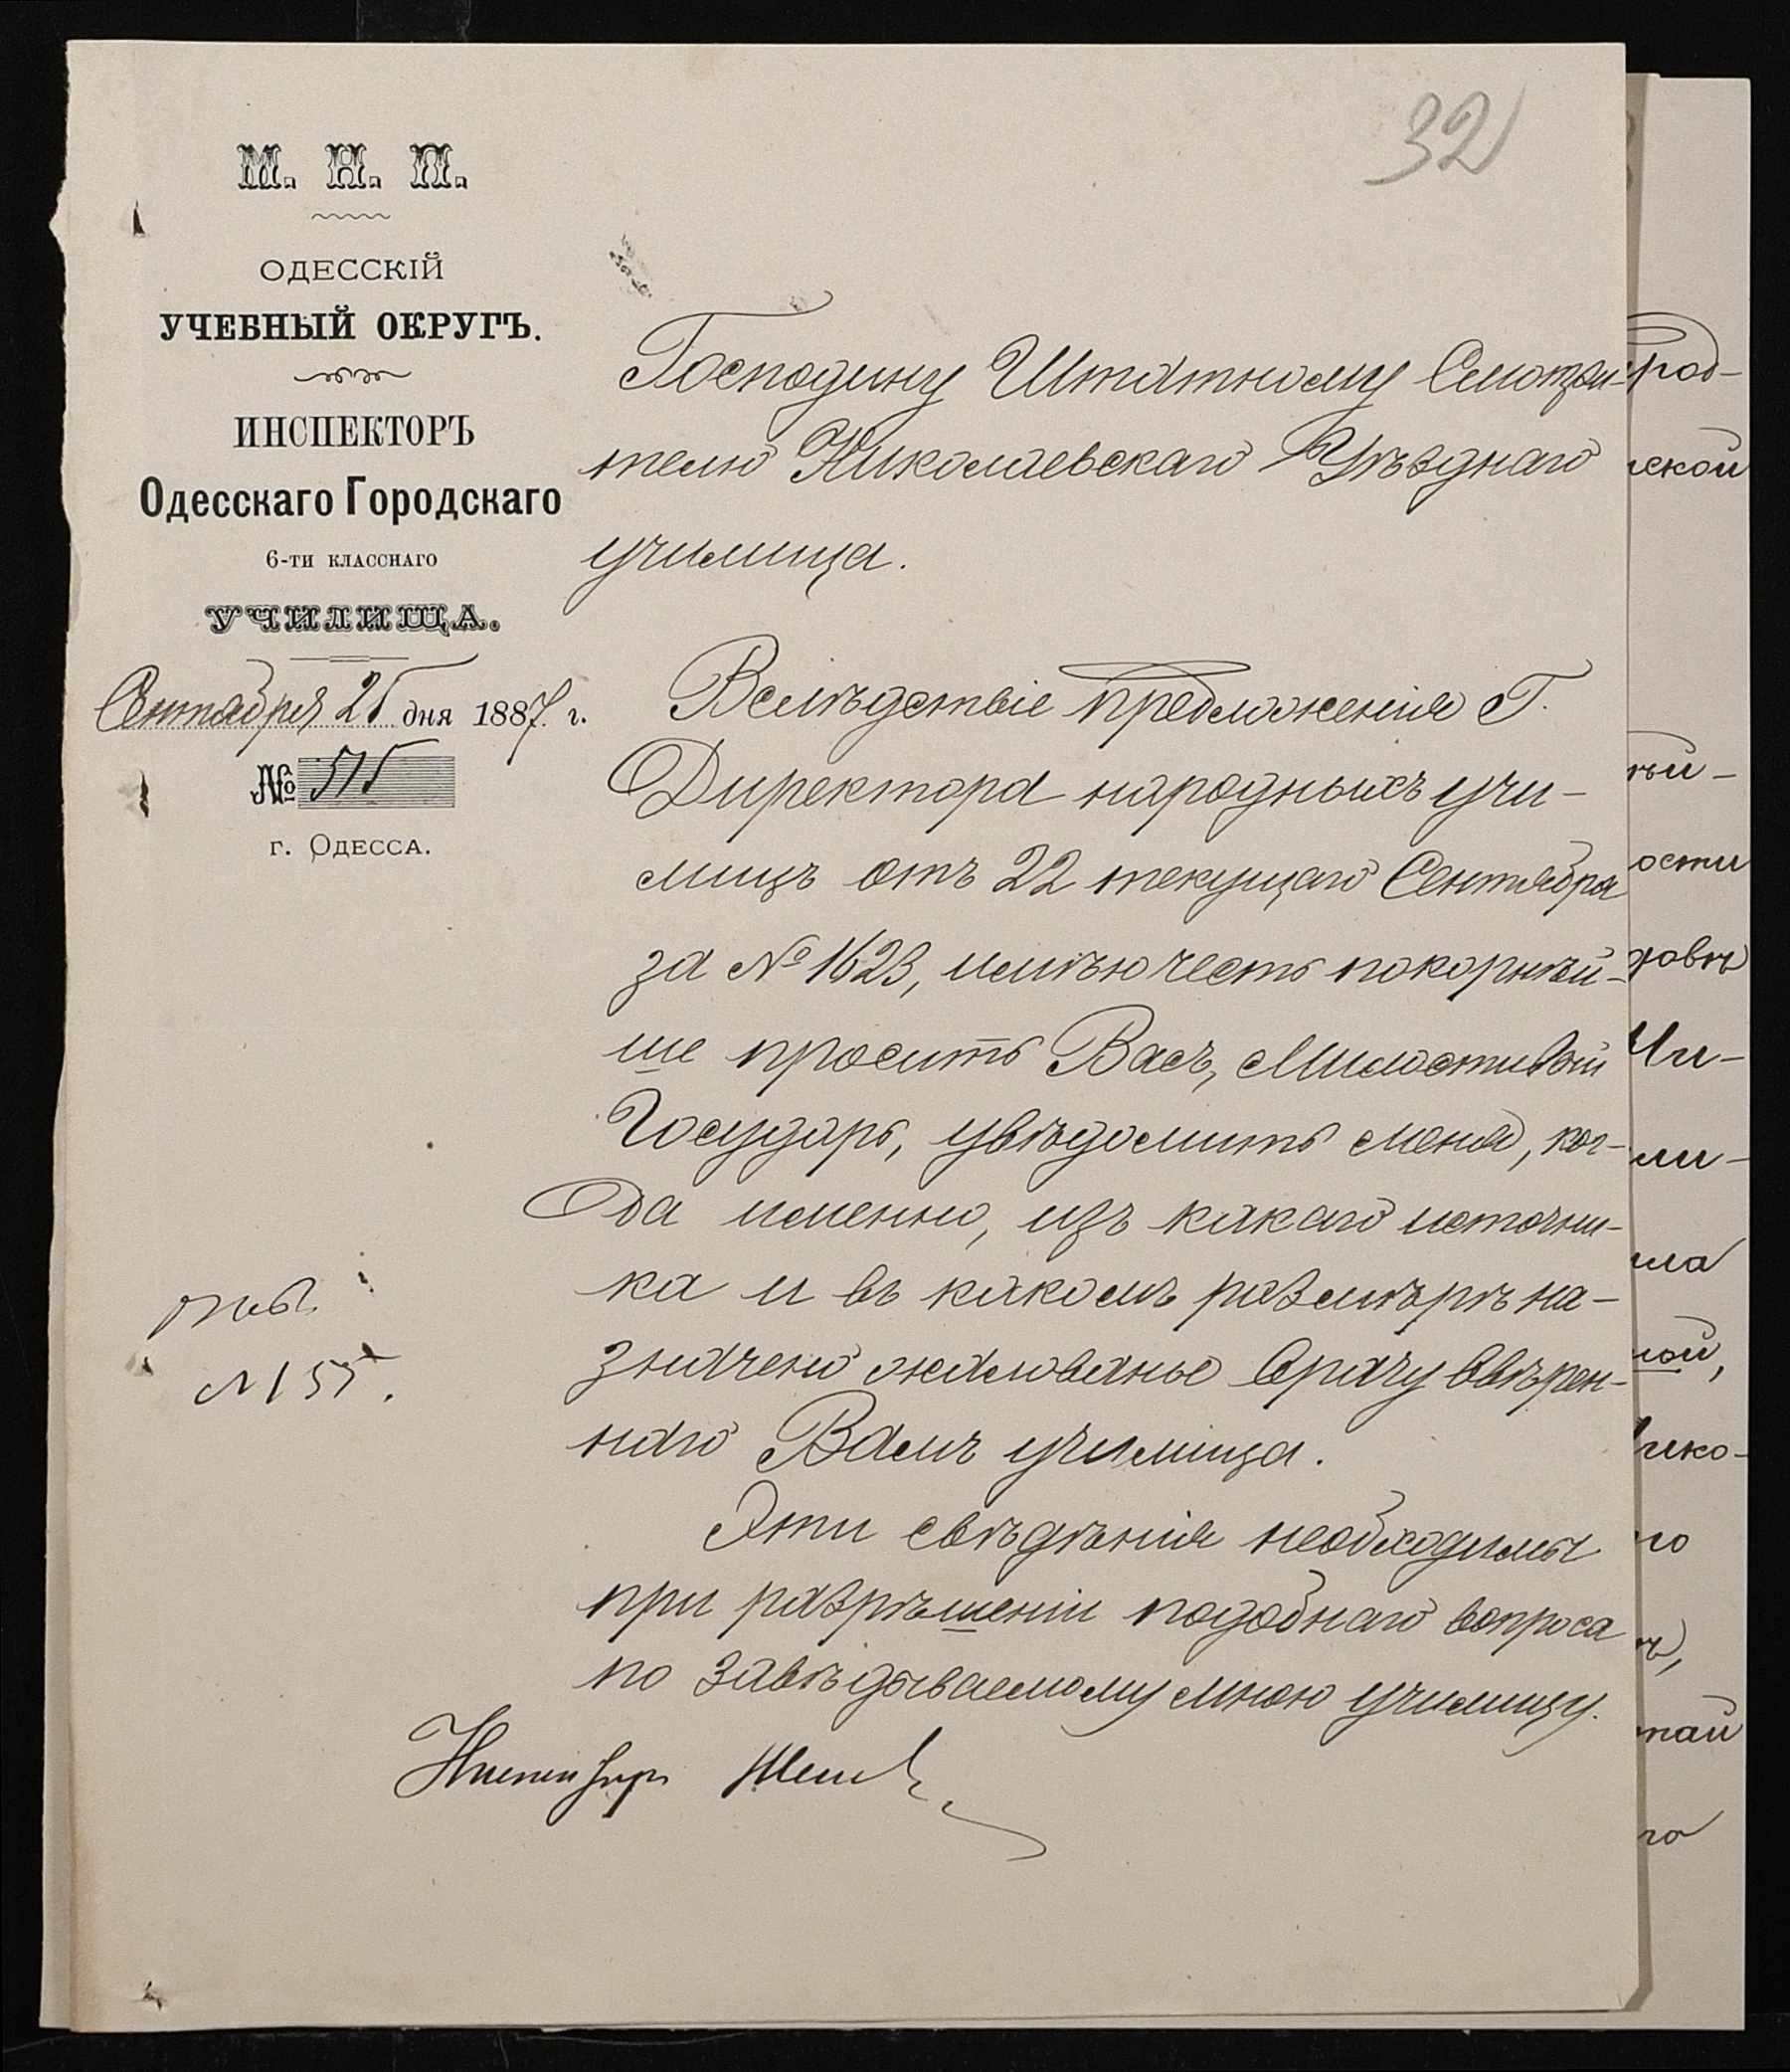 32
М. Н. П.
ОДЕССКІЙ
УЧЕБНЫЙ ОКРУГЪ.
ИНСПЕКТОРЪ
Одесскаго Городскаго
6-ти классхаго
УЧИЛИЩА.
Сентября 25 дня 1887. г.
№ 515
г. Одесса.
Господину Штатному Смотри-
телю Николаевскаго Уѣзднаго
училища.
Вслѣдствіе предложенія Г.
Директора народныхъ учи-
лищъ отъ 22 текущаго Сентября
за № 1623, имѣю честь покорнѣй-
ше просить Васъ, Милостивый
Государь, увѣдомить меня, ког-
да именно, изъ какаго источни-
ка и въ какомъ размѣрѣ на-
значено жалованье врачу ввѣрен-
наго Вамъ училища.
Эти свѣдѣнія необходимы
при разрѣшеніи подобнаго вопроса
по завѣдываемому мною училищу.
Инспекторъ
№ 155.